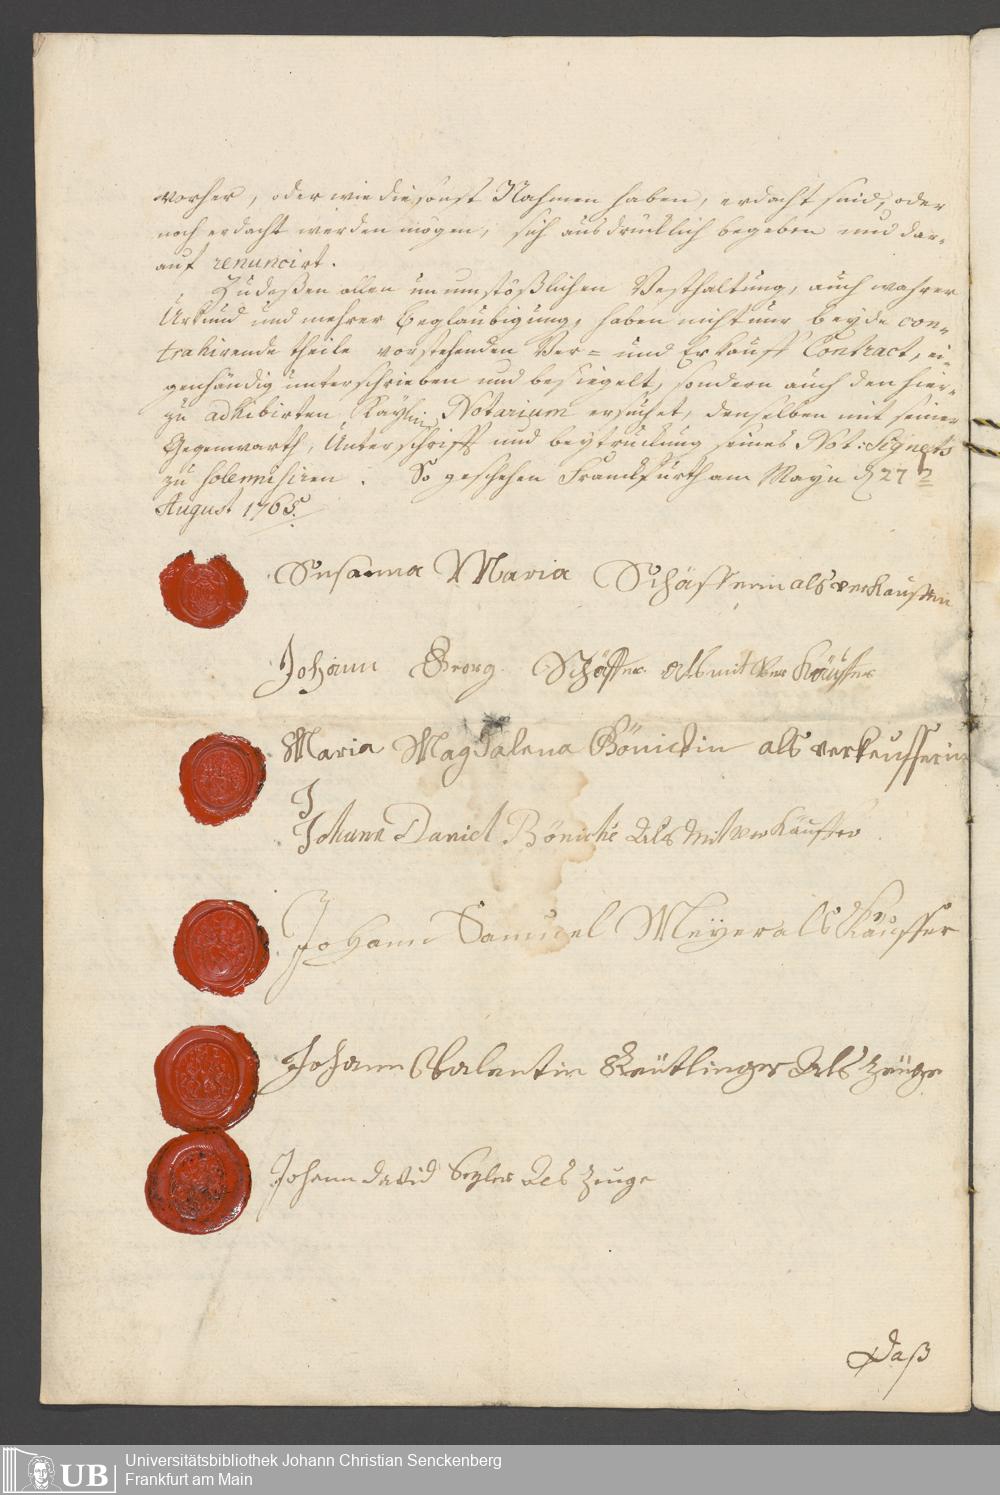 vorher, oder wie die sonst Nahmen haben, erdacht seind, oder
noch erdacht werden mögen, sich ausdrücklich begeben und dar-
auf renuncirt.
Zu deßen allen unumstößlichen Vesthaltung, auch wahrer
Urkund und mehrer Beglaubigung, haben nicht nur beyde con-
trahirende theile vorstehenden Ver= und Erkauff Contract, ei-
genhändig unterschrieben und besiegelt, sondern auch den hier-
zu adhibirten Notarium ersuchet, denselben mit seiner
Gegenwarth, Unterschrifft und beytruckung seines Not: Signets
zu solemnisiren. So geschehen Franckfurth am Mayn d 27
August 1765.
Susanna Maria Schäfferin als verkaufferin
Johann Georg Schäffer als mit Ver Käuffer
Maria Magdalena Bönickin als verkeufferin
J
Johann Daniel Böniche als mit ver Käuffer
Johann Samuel Meÿer als Käuffer
Johann Valentin Reutlinger als Zeuge
Johann david als Zeuge
Daß
UB
Universitätsbibliothek Johann Christian Senckenberg
Frankfurt am Main